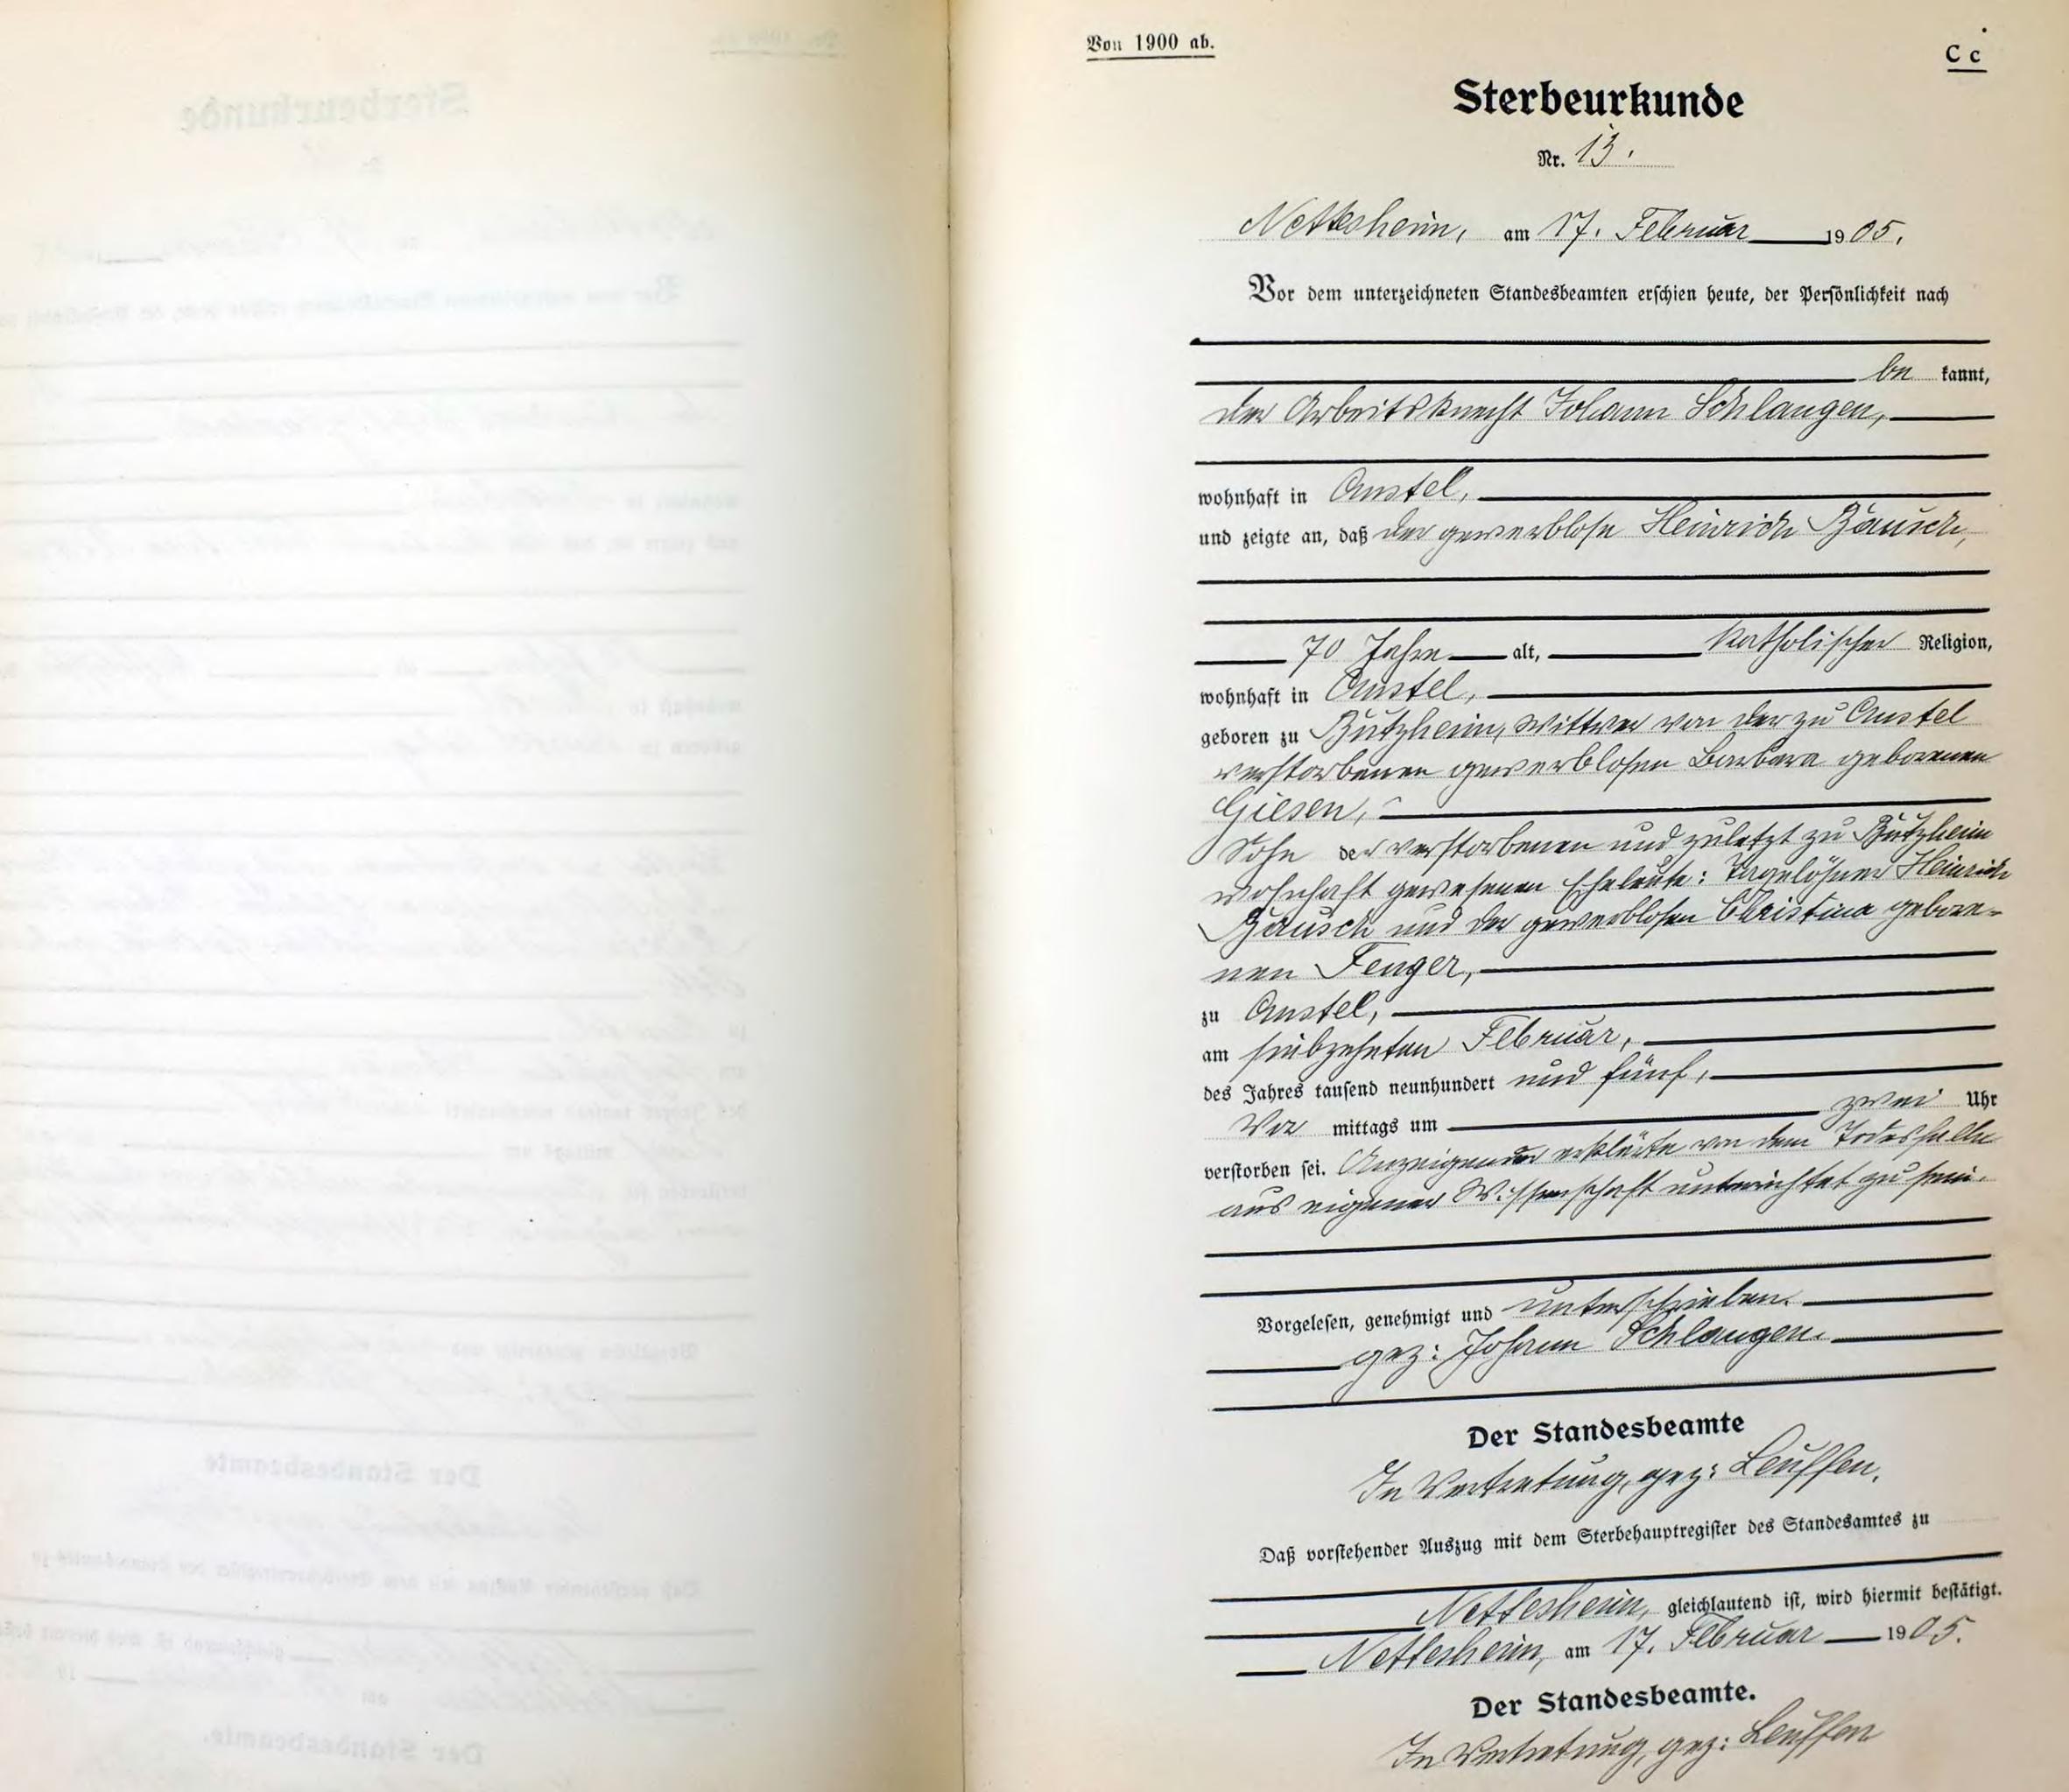 Von 1900 ab.
C c
Sterbeurkunde
Nr. 13.
Nettesheim, am 17. Februar 1905.
Vor dem unterzeichneten Standesbeamten erschien heute, der Persönlichkeit nach
be kannt,
der Arbeitsknecht Johann Schlangen,
wohnhaft in Anstel,
und zeigte an, daß der gewerblose Heinrich Bausch,
70 Jahre alt, katholischer Religion,
wohnhaft in Anstel,
geboren zu Butzheim, Wittwer von der zu Anstel
verstorbenen gewerblosen Barbara geborenen
Giesen,
Sohn der verstorbenen und zuletzt zu Butzheim
wohnhaft gewesenen Eheleute: Tagelöhner Heinrich
Bausch und der gewerblosen Christina gebore-
nen Fenger,
zu Anstel,
am siebzehnten Februar,
des Jahres tausend neunhundert und fünf,
Vor mittags um zwei Uhr
verstorben sei. Anzeigender erklärte von dem Todesfalle
aus eigener Wissenschaft unterrichtet zu sein.
Vorgelesen, genehmigt und unterschrieben.
gez: Johann Schlangen.
Der Standesbeamte
In Vertretung, gez: Leuffen.
Daß vorstehender Auszug mit dem Sterbehauptregister des Standesamtes zu
Nettesheim, gleichlautend ist, wird hiermit bestätigt.
Nettesheim, am 17. Februar 1905.
Der Standesbeamte.
In Vertretung, gez: Leuffen